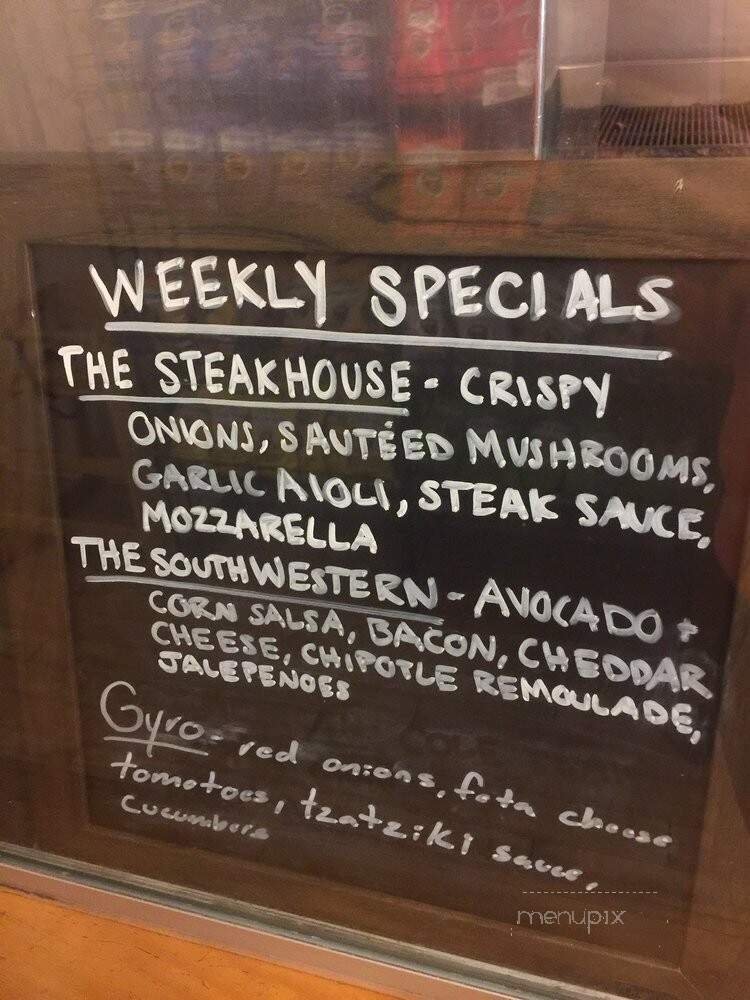 WEEKLY SPECIALS
THE STEAKHOUSE - CRISPY
ONIONS, SAUTÉED MUSHROOMS,
GARLIC AIOLI, STEAK SAUCE,
MOZZARELLA
THE SOUTHWESTERN - AVOCADO +
CORN SALSA, BACON, CHEDDAR
CHEESE, CHIPOTLE REMOULADE,
JALEPENOES
Gyro - red onions, feta cheese
tomatoes, tzatziki sauce,
cucumbers
menupix